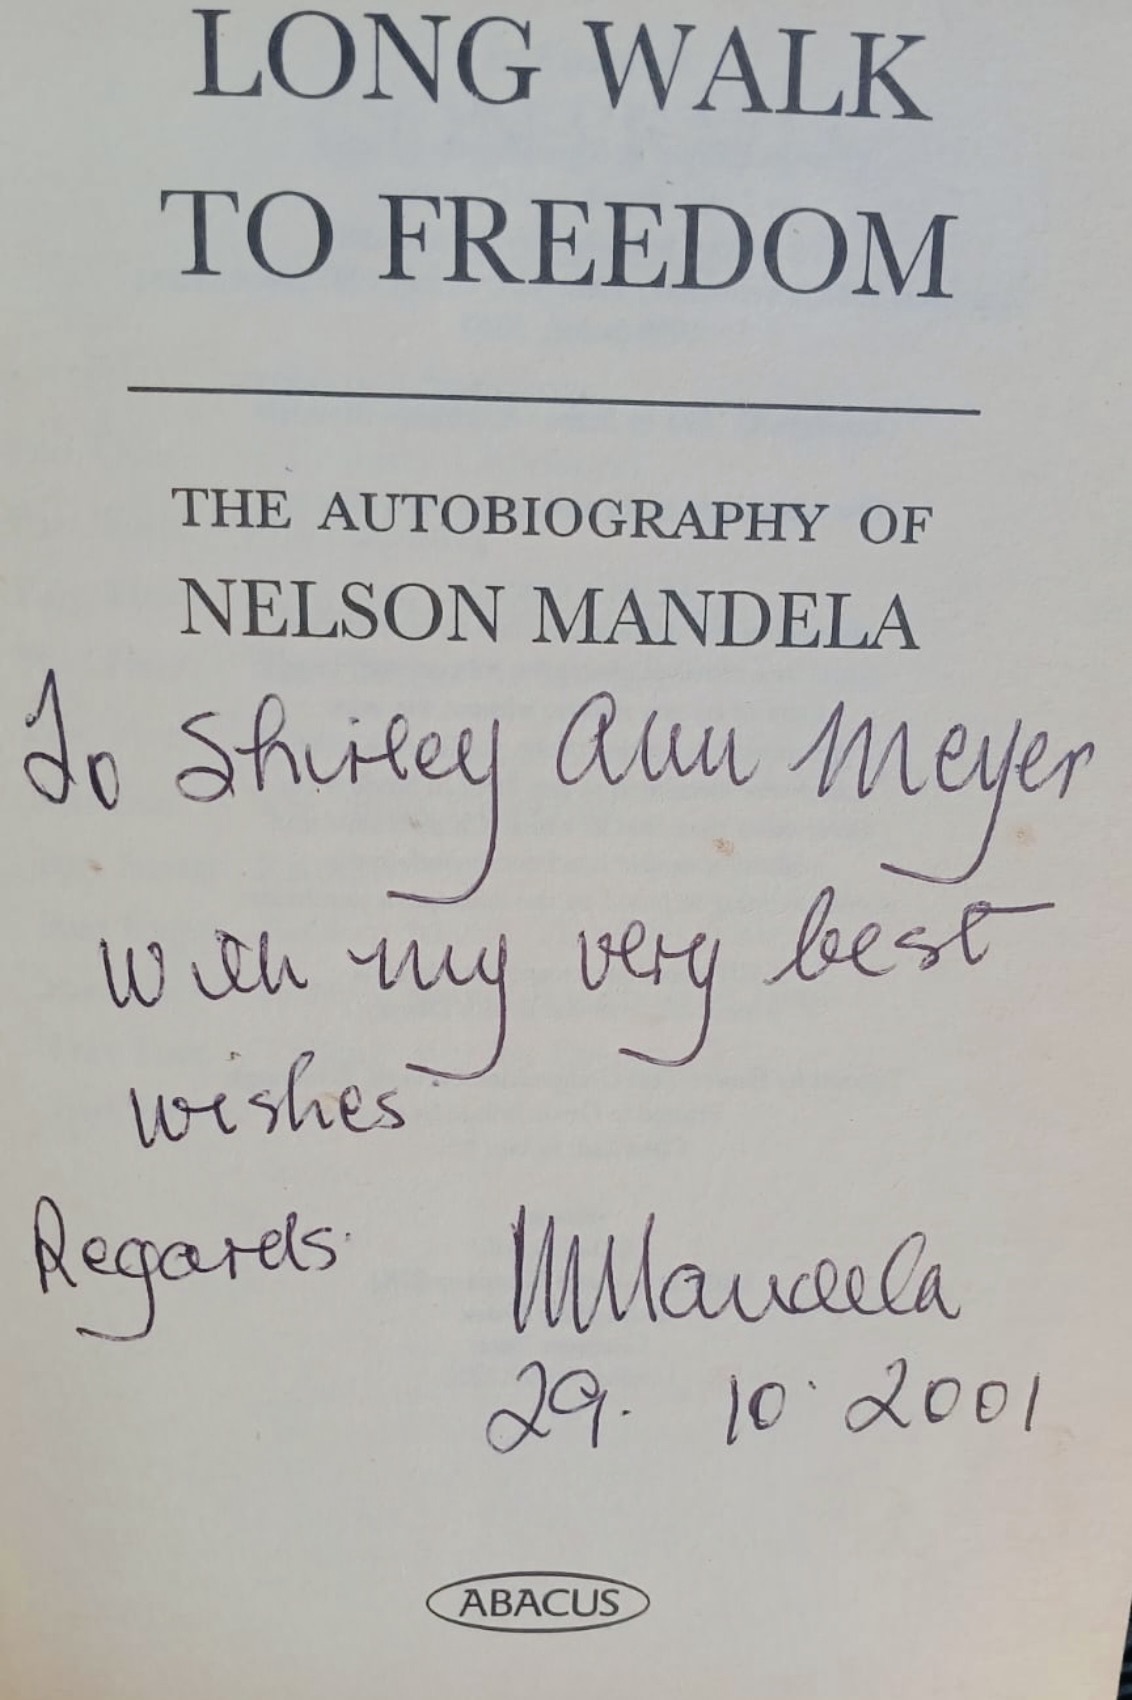 LONG WALK
TO FREEDOM
THE AUTOBIOGRAPHY OF
NELSON MANDELA
To Shirley Ann Meyer
with my very best
wishes
Regards. NMandela
29. 10. 2001
ABACUS